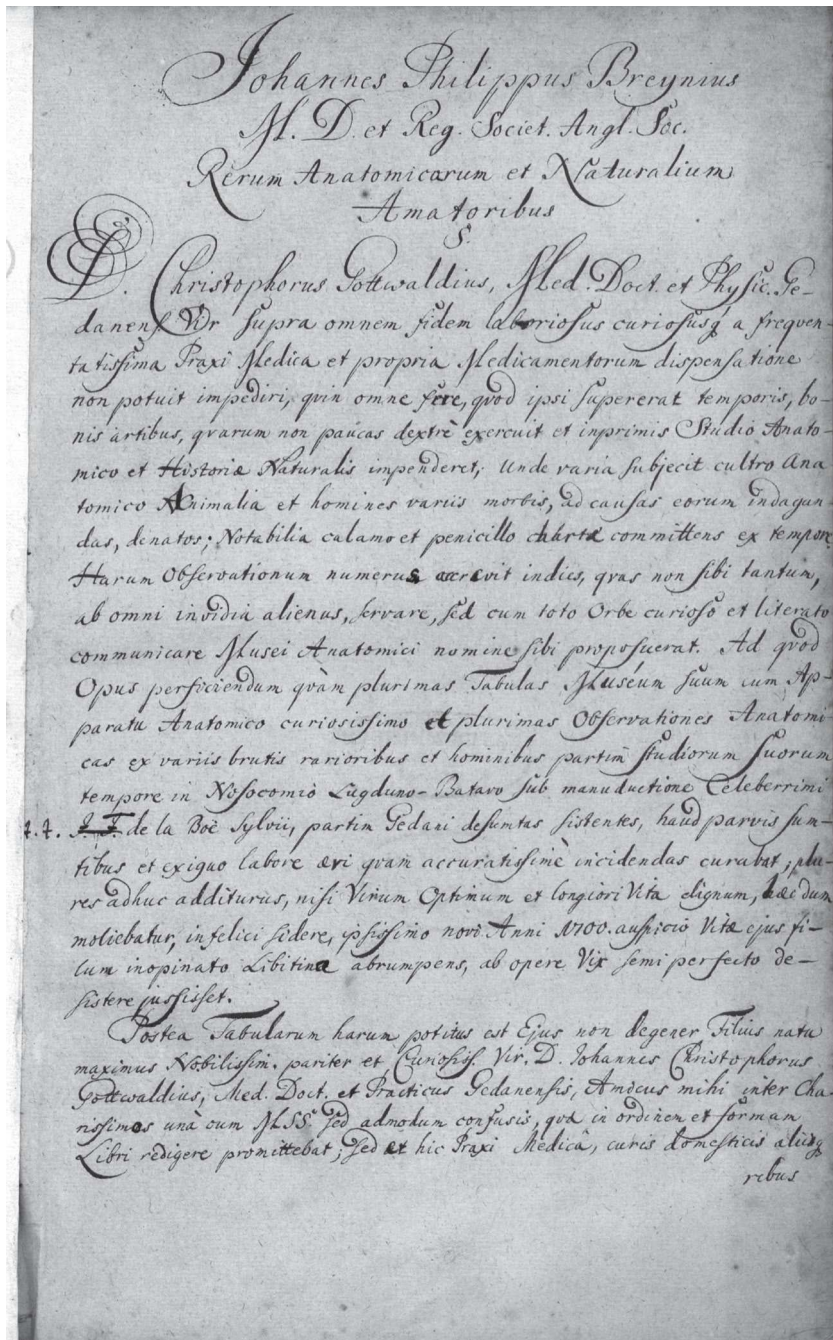 Johannes Philippus Breynius
M. D. et Reg. Societ. Angl. Soc.
Rerum Anatomicarum et Naturalium
Amatoribus
S.
D. Christophorus Gottwaldius, Med. Doct. et Physic. Ge-
danens. Vir supra omnem fidem laboriosus curiosusq́ a frequen-
tatissima Praxi Medica et propria Medicamentorum dispensatione
non potuit impediri, quin omne fere, quod ipsi supererat temporis, bo-
nis artibus, quarum non paucas dextrè exercuit et inprimis Studio Anato-
mico et Historiæ Naturalis impenderet; Unde varia subjecit cultro Ana
tomico Animalia et homines variis morbis, ad causas eorum indagan
das, denatos; Notabilia calamo et penicillo chartæ committens ex tempore
Harum Observationum numerus accrevit indies, quas non sibi tantum,
ab omni invidia alienus, servare, sed cum toto Orbe curioso et literato
communicare Musei Anatomici nomine sibi proposuerat. Ad quod
Opus perficiendum quàm plurimas Tabulas Muséum suum cum Ap-
paratu Anatomico curiosissimo et plurimas Observationes Anatomi
cas ex variis brutis rarioribus et hominibus partim studiorum suorum
tempore in Nosocomio Lugduno-Batavo sub manuductione Celeberrimi
de la Boë Sylvii, partim Gedani desumtas sistentes, haud parvis sum-
tibus et exiguo labore æri quam accuratissimè incidendas curabat; plu-
res adhuc additurus, nisi Virum Optimum et longiori Vita dignum, hæc dum
moliebatur, infelici sidere, ipsissimo novi Anni 1700. auspicio Vitæ ejus fi-
lum inopinato Libitina abrumpens, ab opere Vix semiperfecto de-
sistere jussisset.
Postea Tabularum harum potitus est Ejus non degener Filius natu
maximus Nobilissim. pariter et Curiosiss. Vir. D. Johannes Christophorus
Gottwaldius, Med. Doct. et Practicus Gedanensis, Amicus mihi inter Cha-
rissimos unà cum MSS. sed admodum confusis, quæ in ordinem et formam
Libri redigere promittebat; sed et hic Praxi Medicâ, curis domesticis
ribus